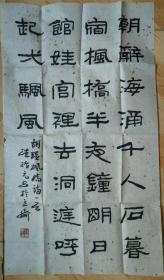 朝辭海涌千人石暮
宿楓橋半夜鐘明日
館娃宮裡去洞庭呼
起弌颿風
詩一首